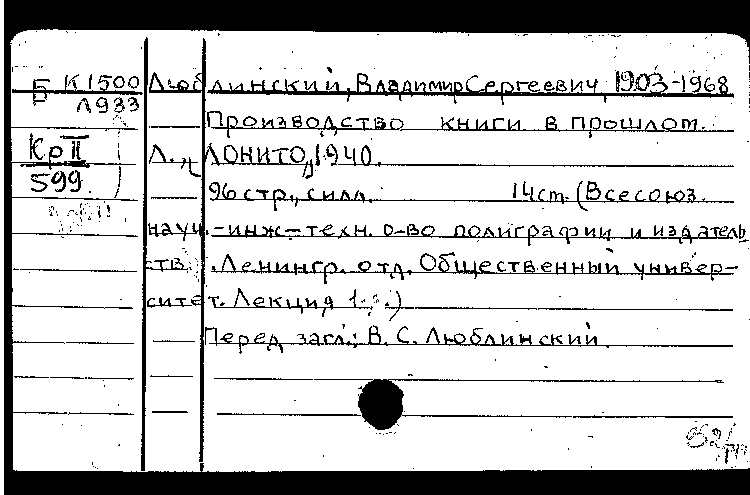 Б К1500 Люблинский, Владимир Сергеевич, 1903-1968
Л933
Производство книги в прошлом.
КрII Л., ЛОНИТО, 1940.
599 96 стр., с илл. 14 см. (Всесоюз.
науч.-инж-техн. о-во полиграфии и издательств. Ленингр. отд. Общественный университет. Лекция 1.)
Перед загл.: В. С. Люблинский.